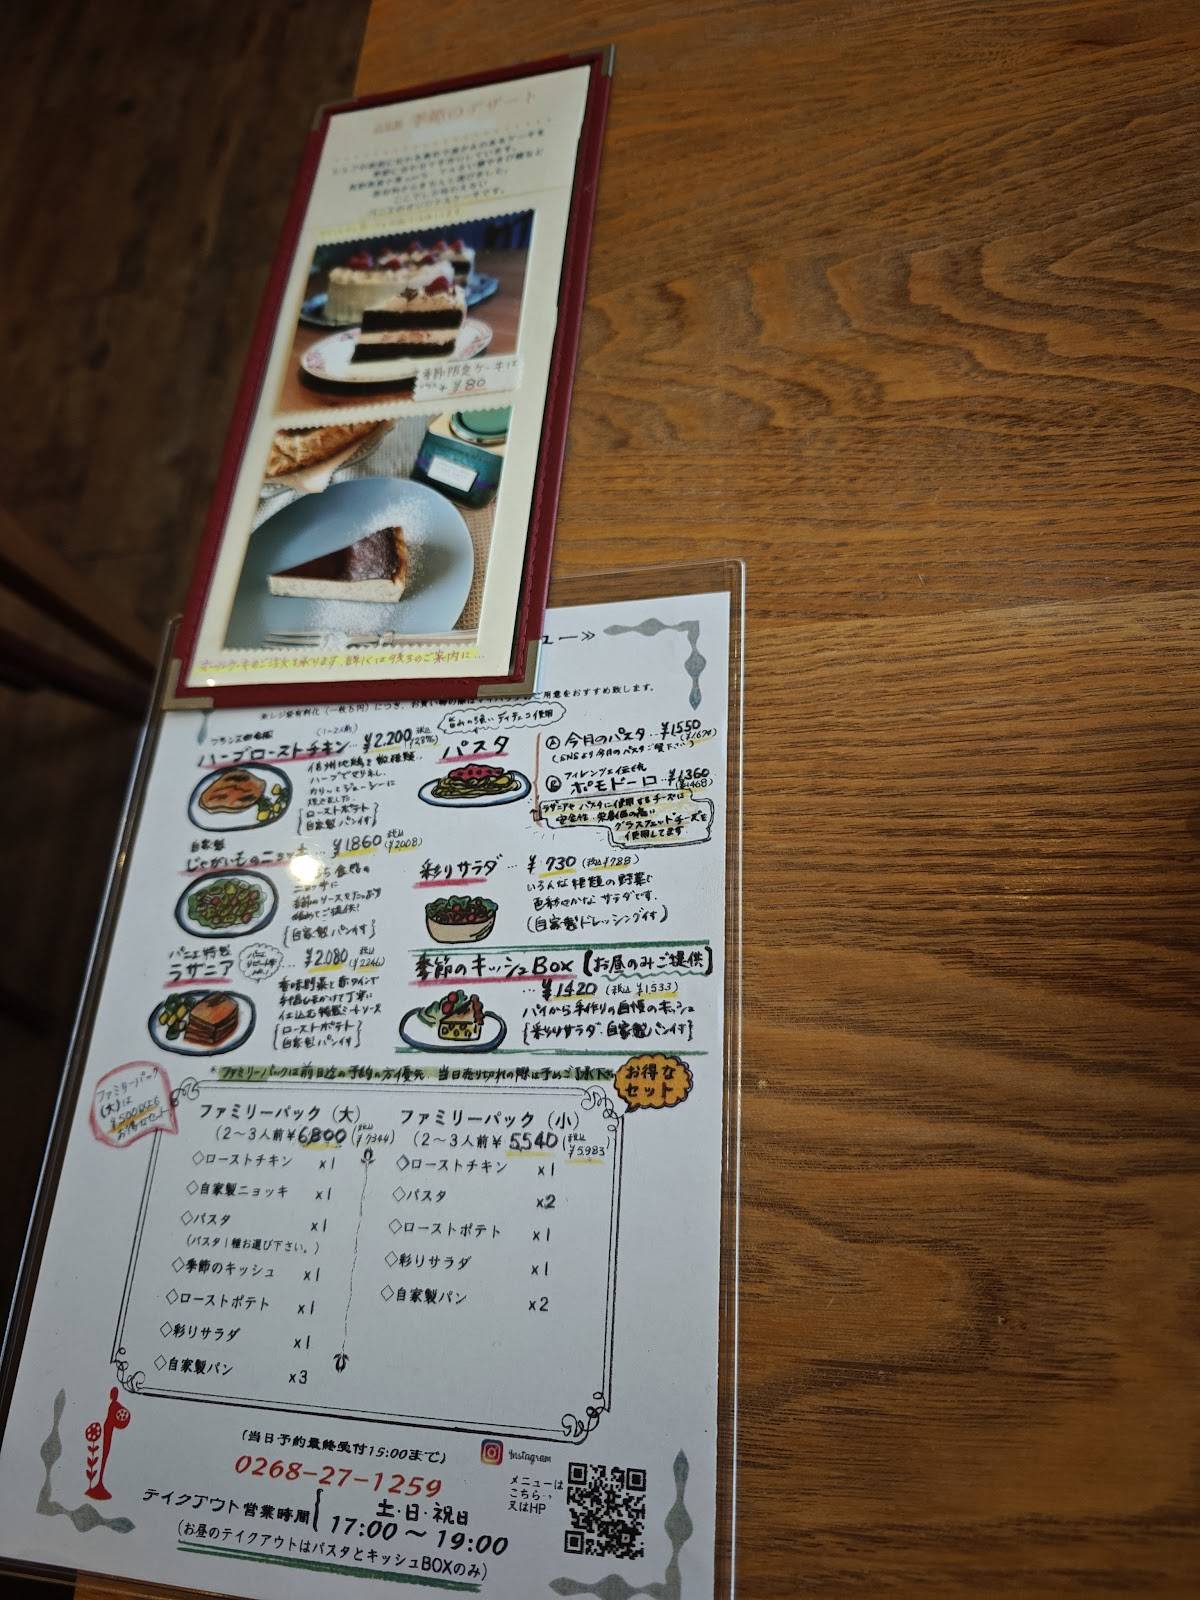 季節のデザート
¥80
ュー≫
ご用意をおすすめ致します。
ハーブローストチキン… ¥2,200 税込(¥2376)
(1〜2人前)
信州地鶏を数種類
ハーブでマリネし、
カリッとジューシーに
焼きました。
[ローストポテト
自家製パン付]
旨みの強いディチェコ使用
パスタ
Ⓐ今月のパスタ…¥1550
(¥1674)
(SNSより今月のパスタご覧下さい)
フィレンツェ伝され
Ⓑポモドーロ…¥1360
(¥1468)
ラザニアやパスタに使用するチーズに
安全性・栄養価の高い
グラスフェッドチーズを
使用してます
自家製
じゃがいものニョッキ… ¥1860 税込(¥2008)
ニョッキに
季節のソースをたっぷり
絡めてご提供!
[自家製パン付]
彩りサラダ… ¥730 (税込¥788)
いろんな種類の野菜で
色鮮やかな サラダです。
(自家製ドレッシング付)
パニエ特製
ラザニア … ¥2,080 税込(¥2246)
香味野菜と赤ワインで
手間ひまかけて丁寧に
仕込む特製ミートソース
[ローストポテト
自家製パン付]
季節のキッシュBOX [お昼のみご提供]
…¥1420 (税込 ¥1533)
パイから手作りの自慢のキッシュ
[彩りサラダ・自家製パン付]
*ファミリーパックは前日迄の予約の方優先、当日売り切れの際は予めご了承下さい
お得な
セット
ファミリーパック
(大)は
¥500以上も
お得なセット
ファミリーパック(大)
(2〜3人前¥6,800(税込¥7344)
◇ローストチキン x1
◇自家製ニョッキ x1
◇パスタ x1
(パスタ1種お選び下さい。)
◇季節のキッシュ x1
◇ローストポテト x1
◇彩りサラダ x1
◇自家製パン x3
ファミリーパック(小)
(2〜3人前¥5,540(税込¥5,983)
◇ローストチキン x1
◇パスタ x2
◇ローストポテト x1
◇彩りサラダ x1
◇自家製パン x2
(当日予約最終受付15:00まで)
0268-27-1259
Instagram
メニューは
こちら…
又はHP
テイクアウト営業時間[土・日・祝日
17:00〜19:00
(お昼のテイクアウトはパスタとキッシュBOXのみ)